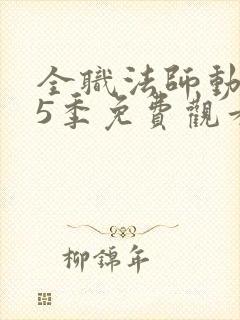 全職法師動
5季免費觀
柳錦年